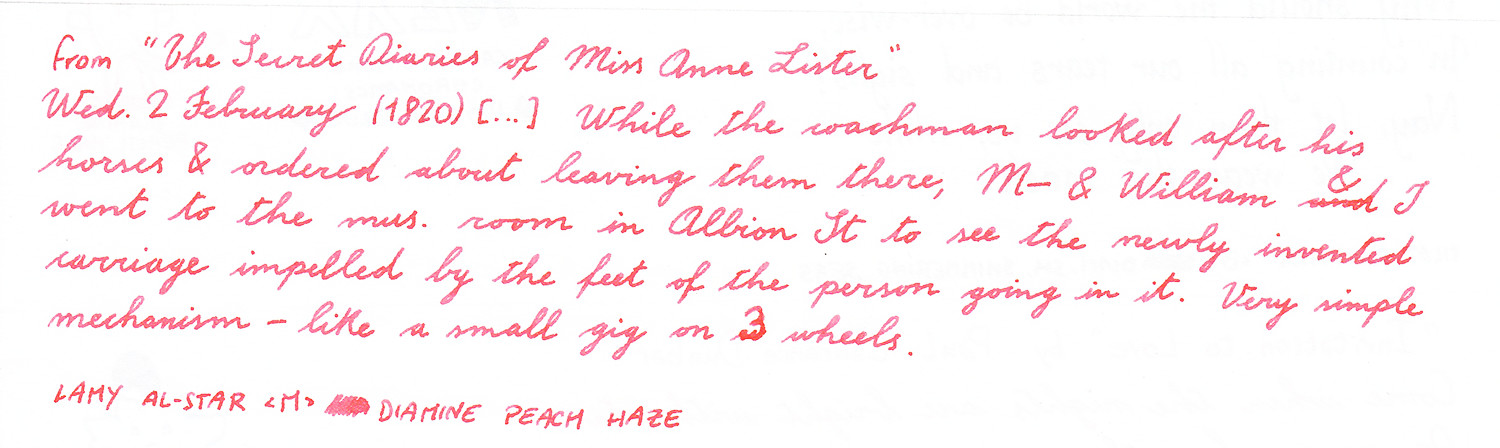 From "The Secret Diaries of Miss Anne Lister"
Wed. 2 February (1820) [...] While the coachman looked after his
horses & ordered about leaving them there, M- & William & I
went to the mus. room in Albion St to see the newly invented
carriage impelled by the feet of the person going in it. Very simple
mechanism - like a small gig on 3 wheels.
LAMY AL-STAR <M> DIAMINE PEACH HAZE